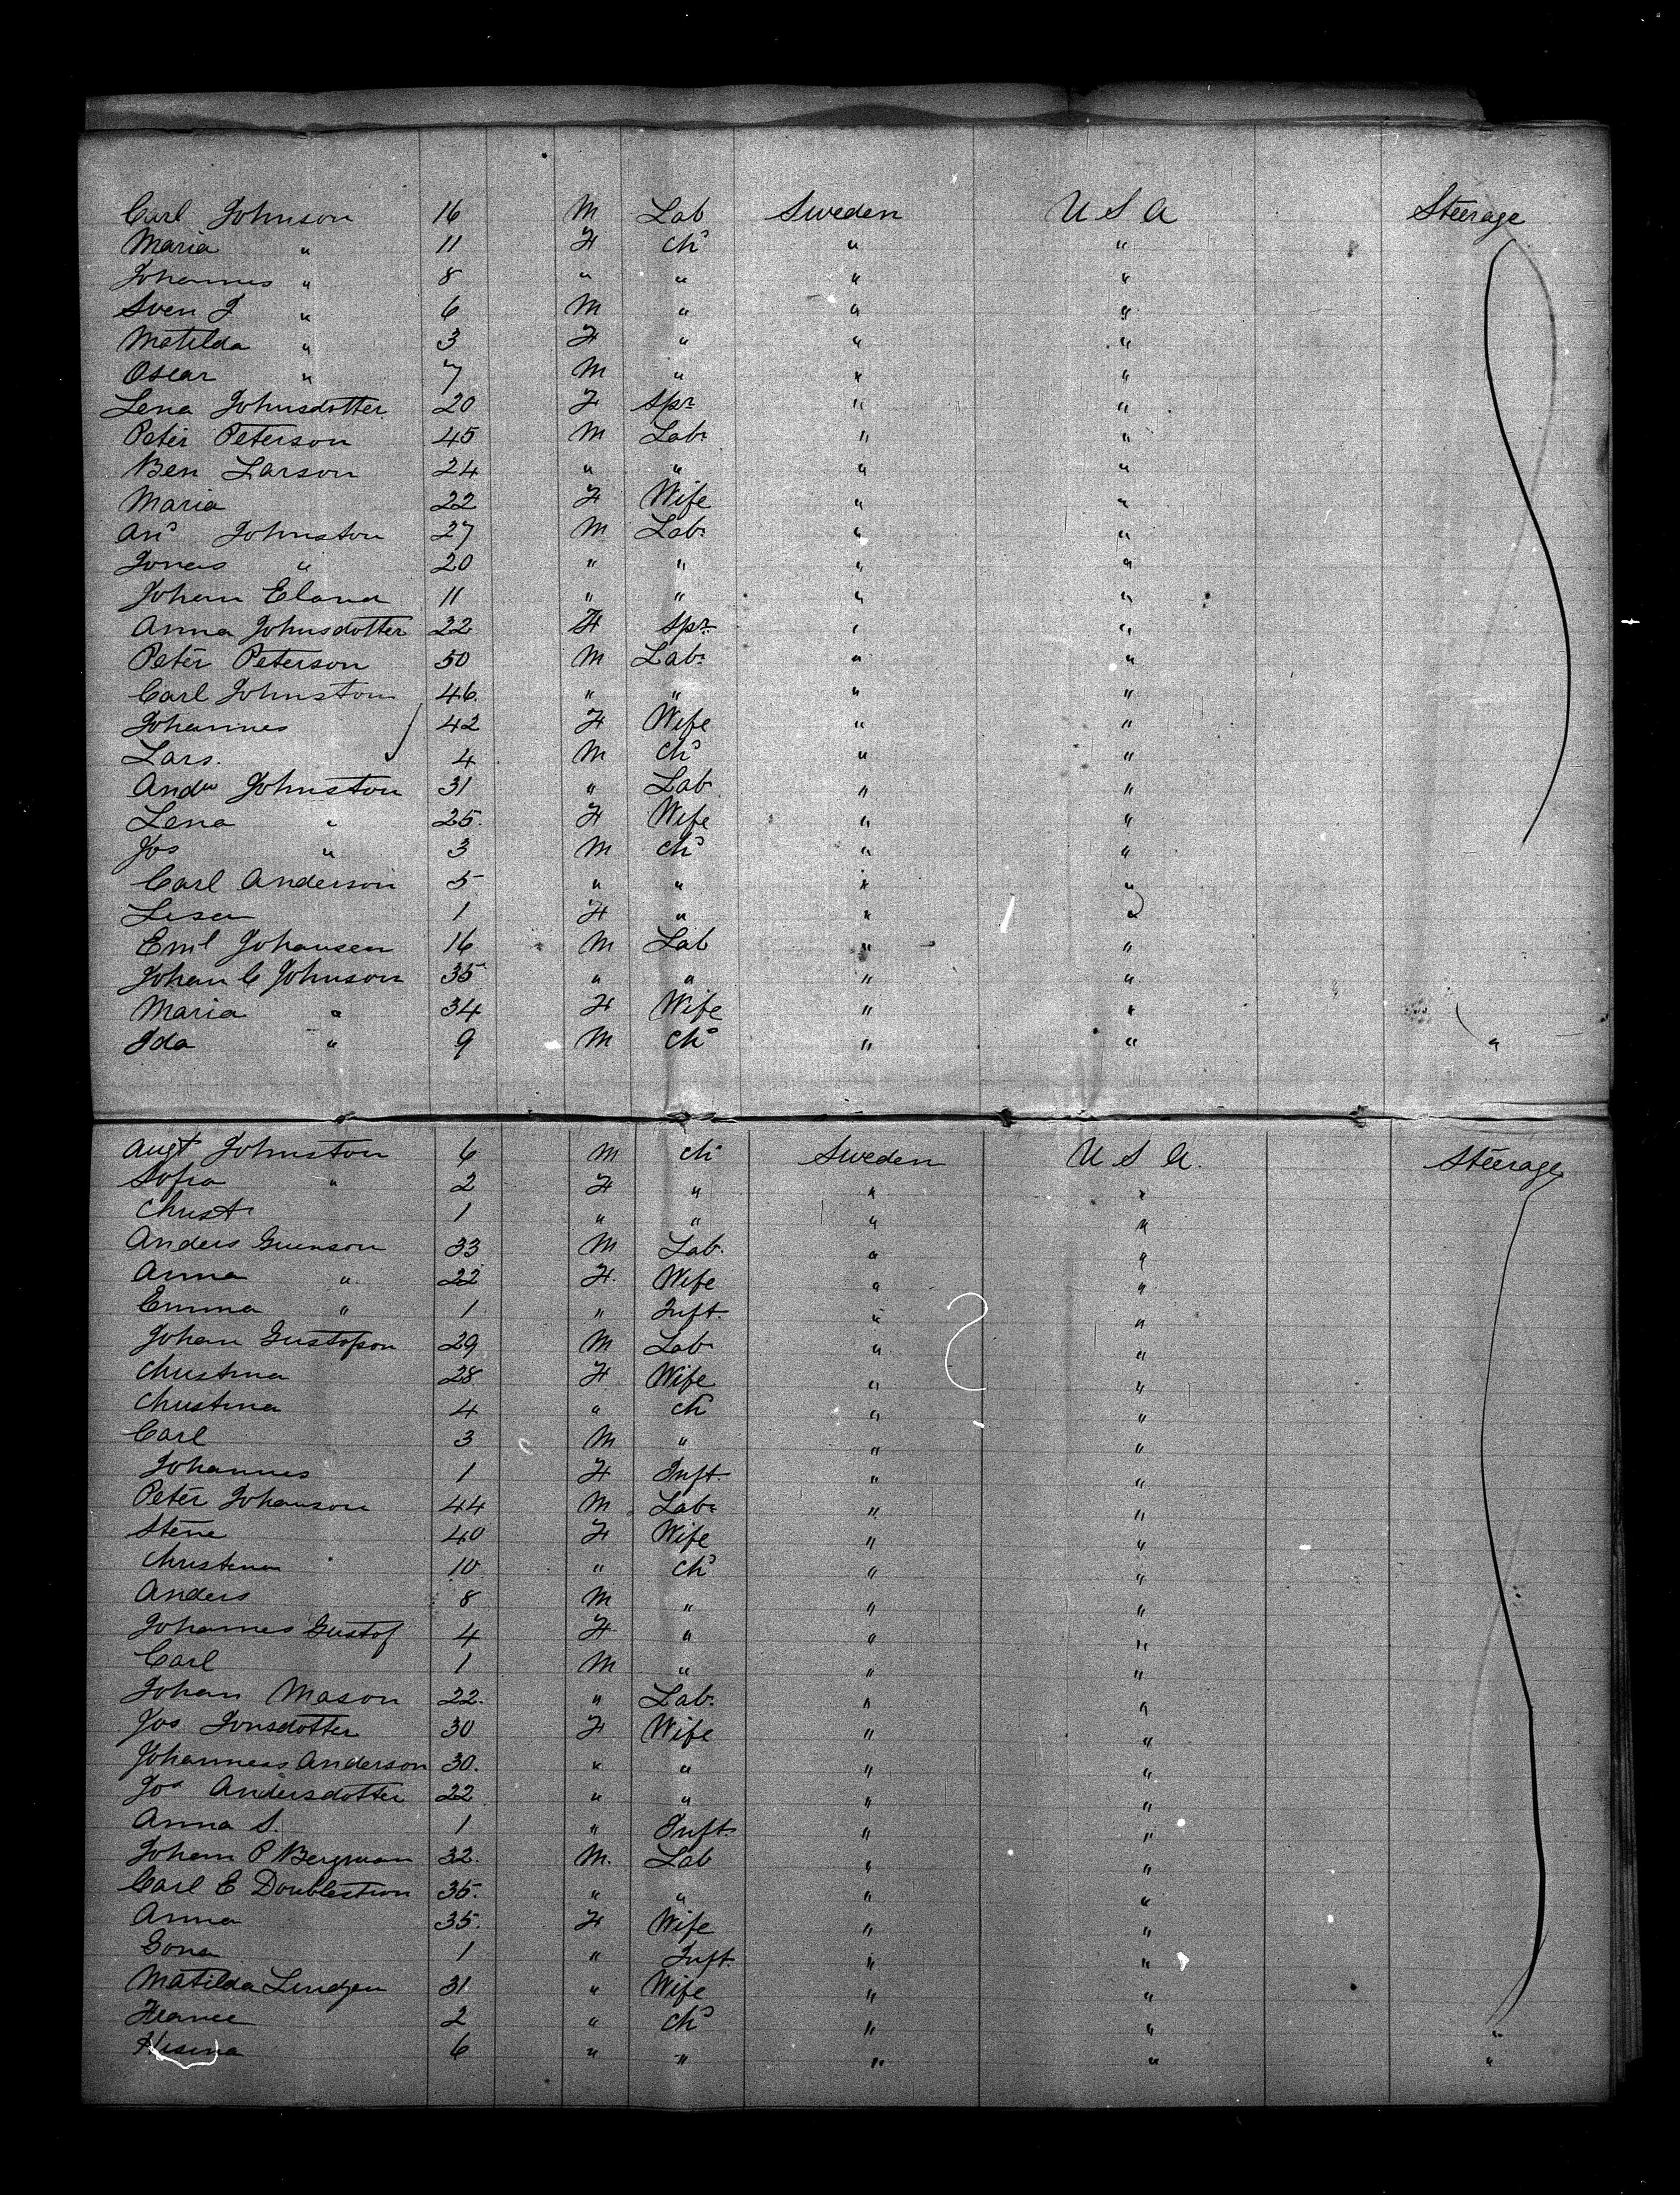 Carl Johnson 16 M Lab Sweden U S A Steerage
Maria " 11 F chd " "
Johannes " 8 " " " "
Sven J " 6 M " " "
Matilda " 3 F " " "
Oscar " 7 M " " "
Lena Johnsdotter 20 F Spr " "
Peter Peterson 45 M Labr " "
Ben Larson 24 " " " "
Maria 22 F Wife " "
Johnston 27 M Labr " "
Jonas " 20 " " " "
Johan Eland 11 " " " "
Anna Johnsdotter 22 F Spr " "
Peter Peterson 50 M Labr " "
Carl Johnston 46 " " " "
Johannes 42 F Wife " "
Lars 4 M chd " "
Andw Johnston 31 " Lab " "
Lena " 25 F Wife " "
Jos " 3 M chd " "
Carl Anderson 5 " " " "
Lisa 1 F " " "
Eml Johansen 16 M Lab " "
Johan C Johnson 35 " " " "
Maria " 34 F Wife " "
Ida " 9 M chd " " "
Augt Johnston 6 M ch Sweden U S A. Steerage
Sofia " 2 F " " "
Christ 1 " " " "
Anders 33 M Lab. " "
Anna " 22 F. Wife " "
Emma " 1 " Inft. " "
Johan Gustafson 29 M Labr " "
Christina 28 F Wife " "
Christina 4 " ch " "
Carl 3 M " " "
Johannes 1 F Inft. " "
Peter Johanson 44 M Labr " "
Stene 40 F Wife " "
Christena 10 " chd " "
Anders 8 M " " "
Johannes Gustof 4 F " " "
Carl 1 M " " "
Johan Mason 22. " Labr " "
Jos Jonsdotter 30 F Wife " "
Johanness Anderson 30. " " " "
Jos Andersdotter 22 " " " "
Anna S. 1 " Inft. " "
Johan P Bergman 32. M. Lab " "
Carl E Doublestron 35. " " " "
Anna 35. F Wife " "
1 " Inft. " "
Matilda 31 " Wife " "
2 " chd " " "
6 " " " " "